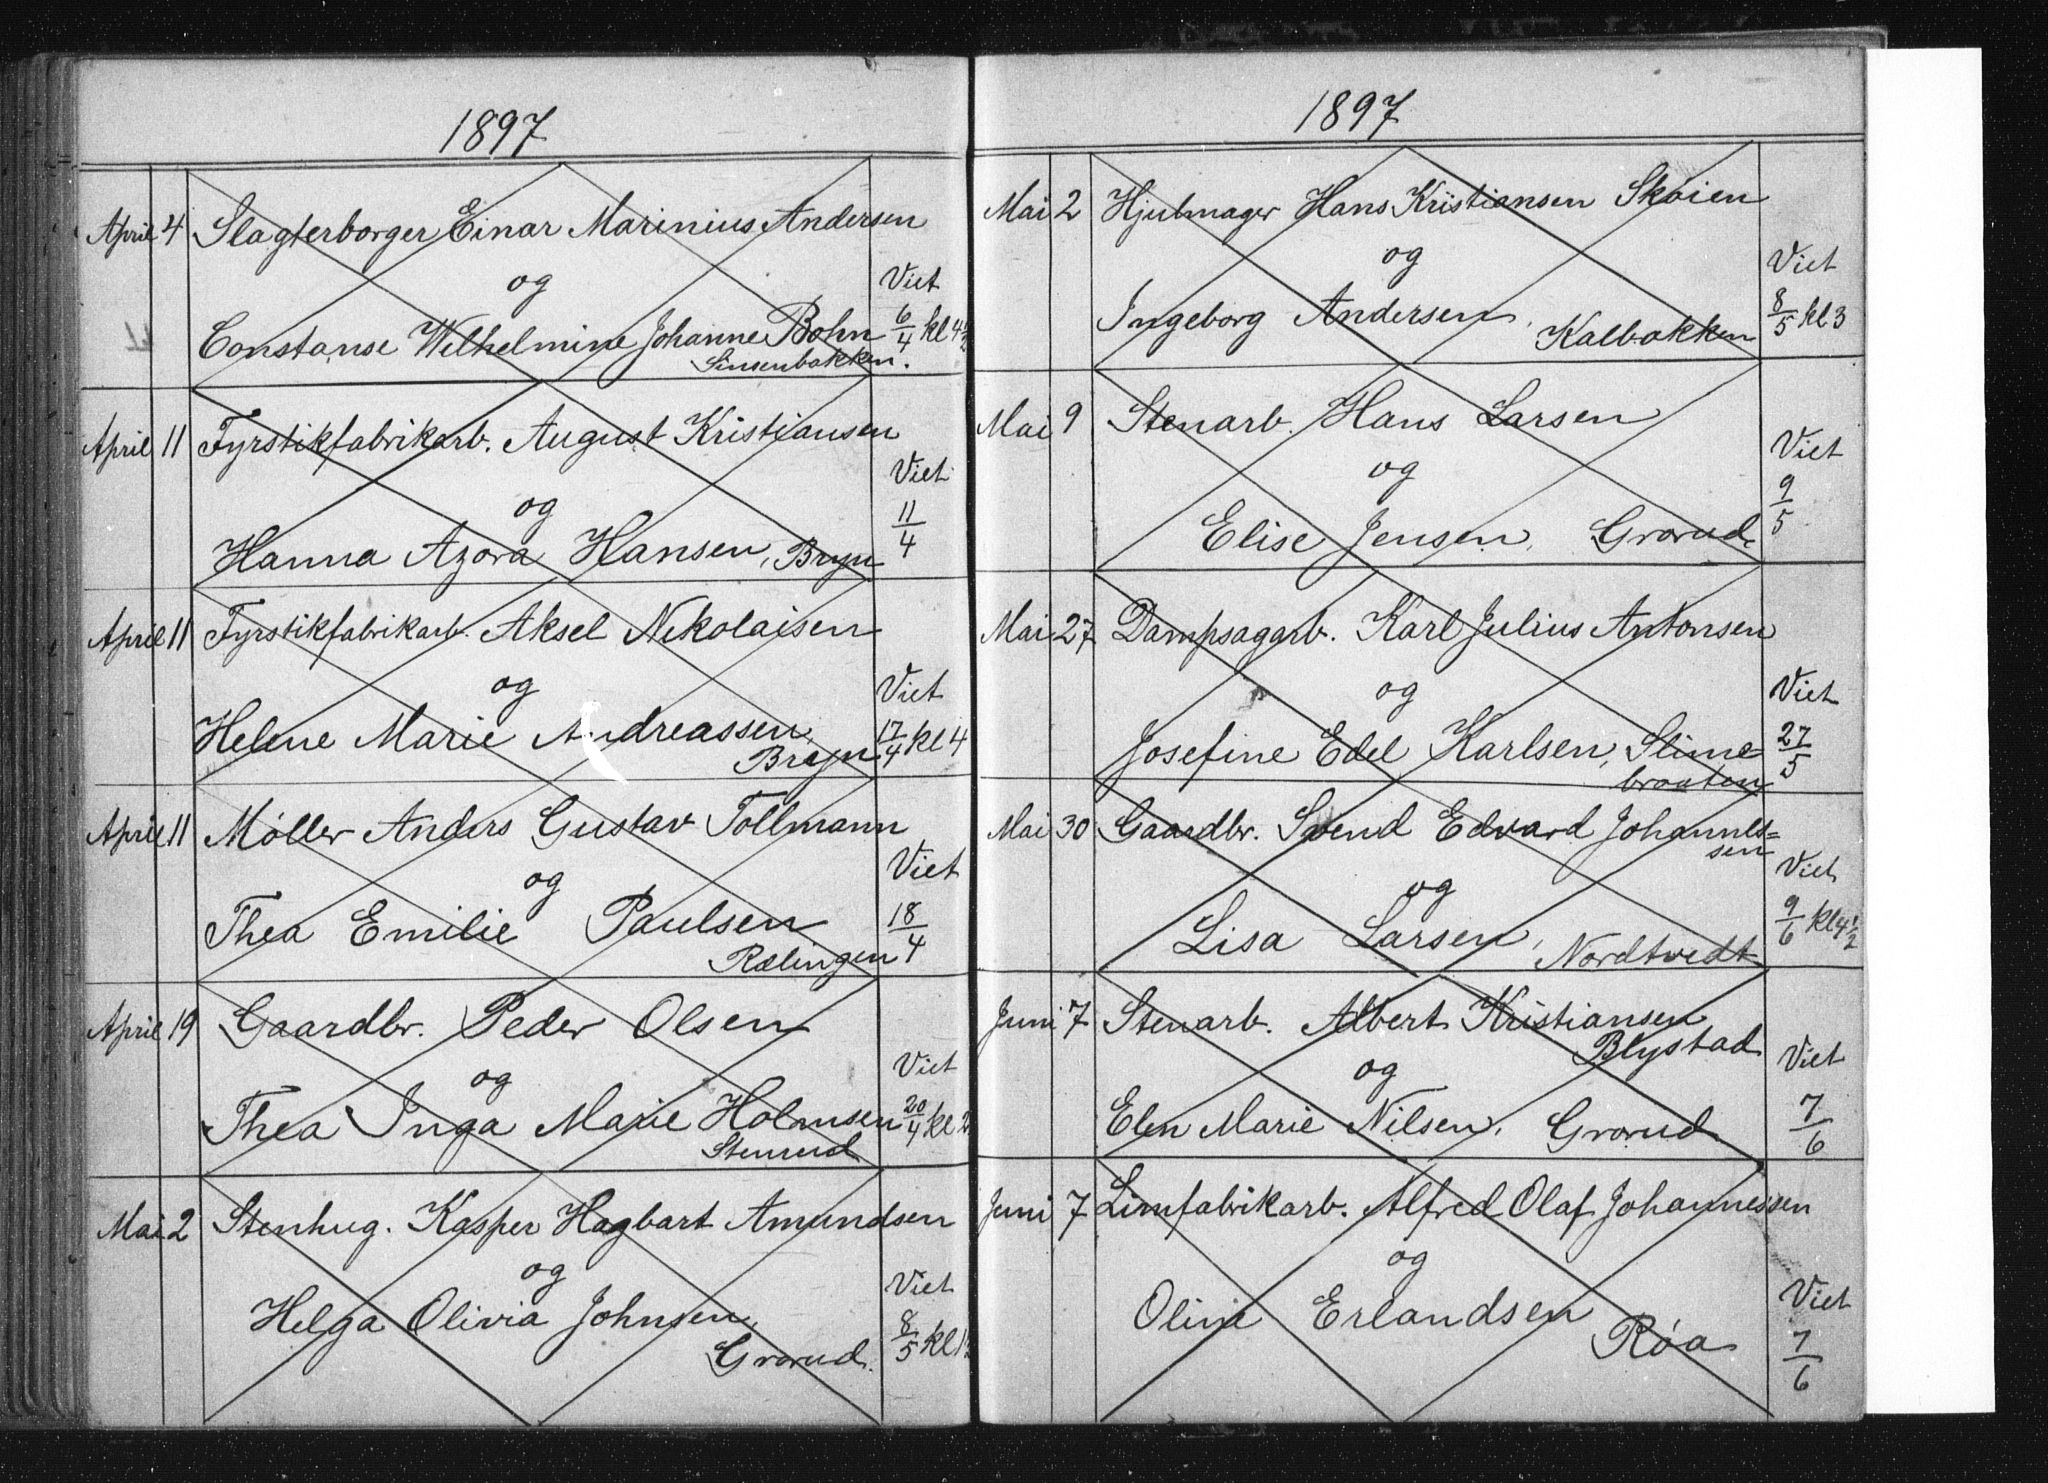 1897
April 4 Slagterborger Einar Marinius Andersen
og
Viet
Constanse Wilhelmine Johanne Bohn 6/4 kl 4 1/2
Sinsenbakken.
April 11 Fyrstikfabrikarb. August Kristiansen
Viet
og
11/4
Hanna Azora Hansen, Bryn
April 11 Fyrstikfabrikarb. Aksel Nikolaisen
og
Viet
Helene Marie Andreassen, 17/4 kl 4
Bryn
April 11 Møller Anders Gustav Tollmann
og
Viet
Thea Emilie Paulsen 18/4
Rælingen
April 19 Gaardbr. Peder Olsen
og
Viet
Thea Inga Marie Holmsen 20/4 kl 2
Stenrud
Mai 2 Stenhug. Kasper Hagbart Amundsen
og
Viet
Helga Olivia Johnsen, 8/5 kl 1 1/2
Grorud.
1897
Mai 2 Hjulmager Hans Kristiansen Skøien
og
Viet
Ingeborg Andersen, Kalbakken 8/5 kl 3
Mai 9 Stenarb. Hans Larsen
Viet
og
9/5
Elise Jensen, Grorud.
Mai 27 Dampsagarb. Karl Julius Antonsen
og
Viet
Josefine Edel Karlsen, Slime= 27/5
braaten
Mai 30 Gaardbr. Svend Edvard Johannes=
sen
Viet
og
9/6 kl 4 1/2
Lisa Larsen, Nordtvedt
Juni 7 Stenarb. Albert Kristiansen
Blystad
Viet
og
Elen Marie Nilsen, Grorud 7/6
Juni 7 Limfabrikarb. Alfred Olaf Johannessen
og
Viet
Olive Erlandsen
Røa 7/6